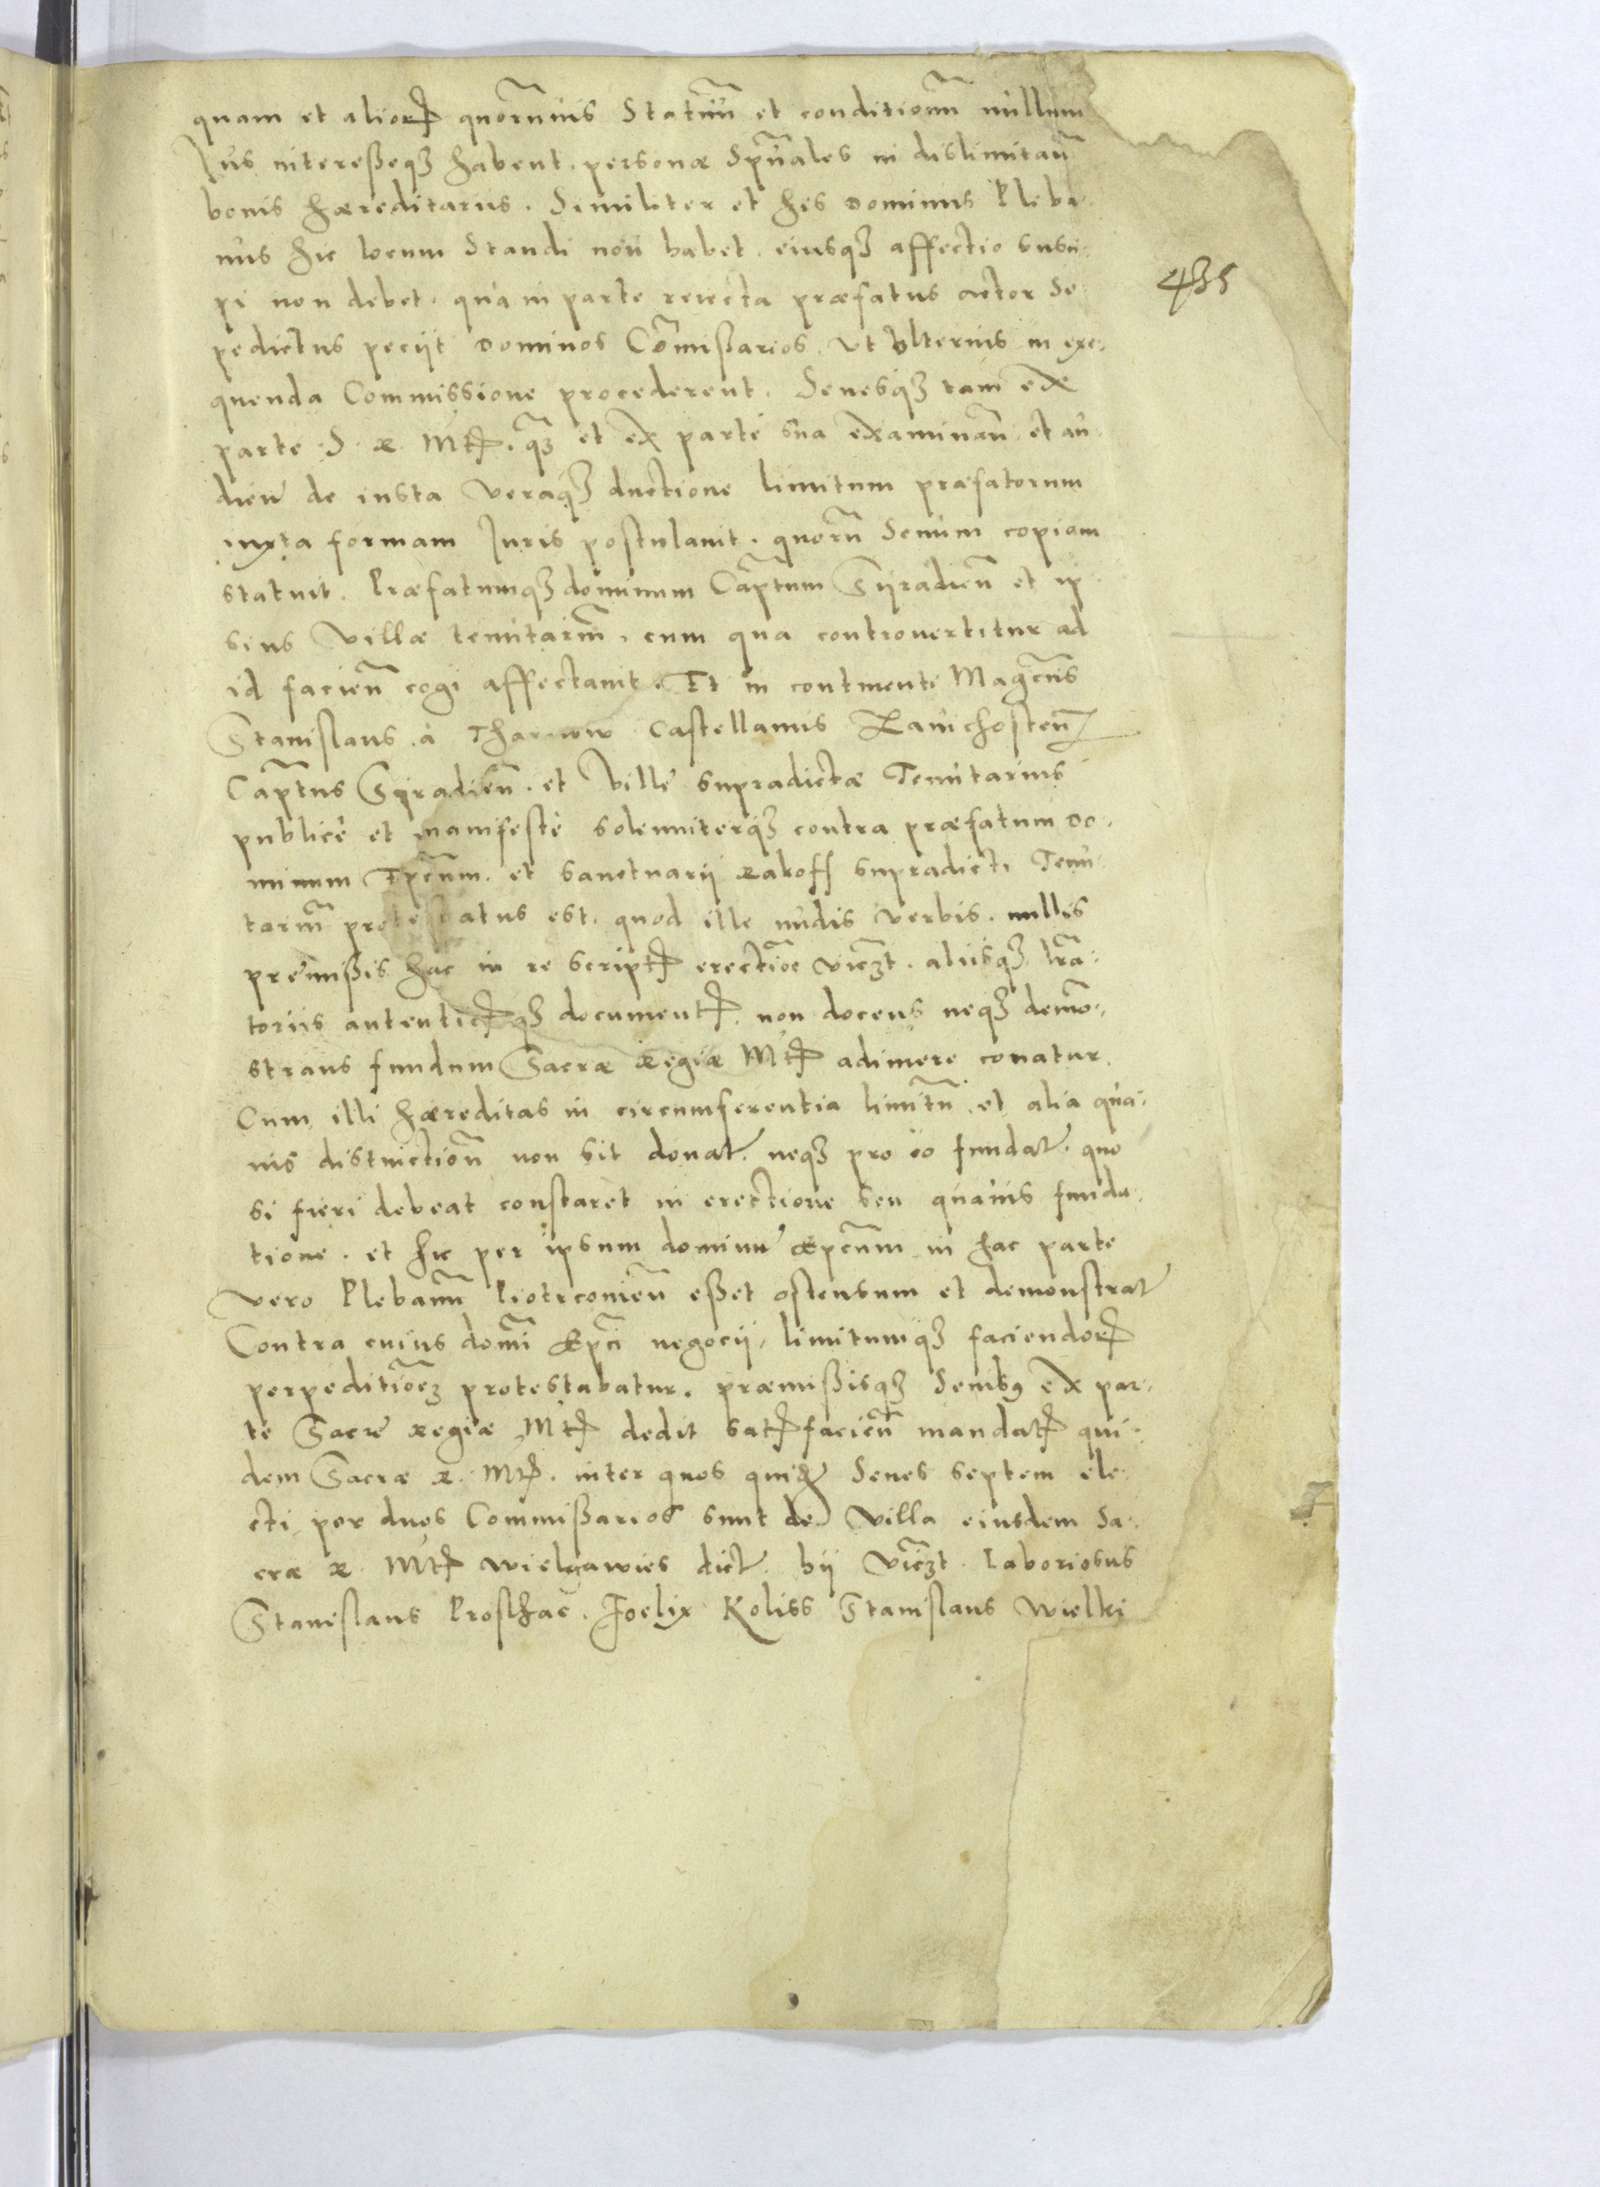 quam et aliorꝝ quorūvis Statuū et conditionū nullum
Jus interesseqꝫ habent. personæ Spūales in dislimitañ
bonis hæreditariis. Similiter et hēs dominus Pleba-
nus hic locum Standi non habet. eiusqꝫ affectio susci-
pi non debet. qua in parte reiecta præfatus actor Se-
pedictus peciit dominos Cōmissarios. Vt Vlterius in exe-
quenda Commissione procederent. Senesqꝫ tam ex
parte S. R. Mtꝭ. qꝫ et ex parte sua examinañ. et au-
dieñ de iusta veraqꝫ ductione limitum præfatorum
iuxta formam Juris postulavit. quorū Senum copiam
statuit. Præfatumqꝫ dominum Capītum Syradieñ et ip-
sius Villæ tenutariū. cum qua controvertitur ad
id facieñ cogi affectavit. Et in continenti Magcūs
Stanislaus à Tharnow Castellanus Zavichosteñ
Capītus Syradieñ. et Villę supradictæ Tenutarius
publicè et manifestè solenniterqꝫ contra præfatum do-
minum Epcūm. et sanctuarii Rakoss supradicti Tenu-
tariū protestatus est. quod ille nudis verbis. nullis
premissis hac in re scriptꝭ erectiōe viczt. aliisqꝫ lrā-
toriis autenticꝭqꝫ documentꝭ. non docens neqꝫ demō-
strans fundum Sacræ Regiæ Mtꝭ adimere conatur.
Cum illi hæreditas in circumferentia limitū. et alia qua-
vis distinctioñ non sit donat. neqꝫ pro eo fundat. quo
si fieri debeat constaret in erectione seu quavis funda-
tione. et hic per ipsum dominū Epcūm in hac parte
vero Plebanū Piotrcovieñ esset ostensum et demonstrat
Contra cuius domī Epcī negocii, limitumqꝫ faciendorꝝ
perpeditiōeꝫ protestabatur. præmissisqꝫ Senibꝫ ex par-
te Sacrę Regiæ Mtꝭ dedit satꝭfacieñ mandatꝭ qui-
dem Sacræ R. Mtꝭ. inter quos quidē Senes septem ele-
cti per duos Commissarios sunt de Villa eiusdem Sa-
cræ R. Mtꝭ Wielgawies dict. hii viczt. Laboriosus
Stanislaus Prosthac. Foelix Koliss Stanislaus Wielki
435